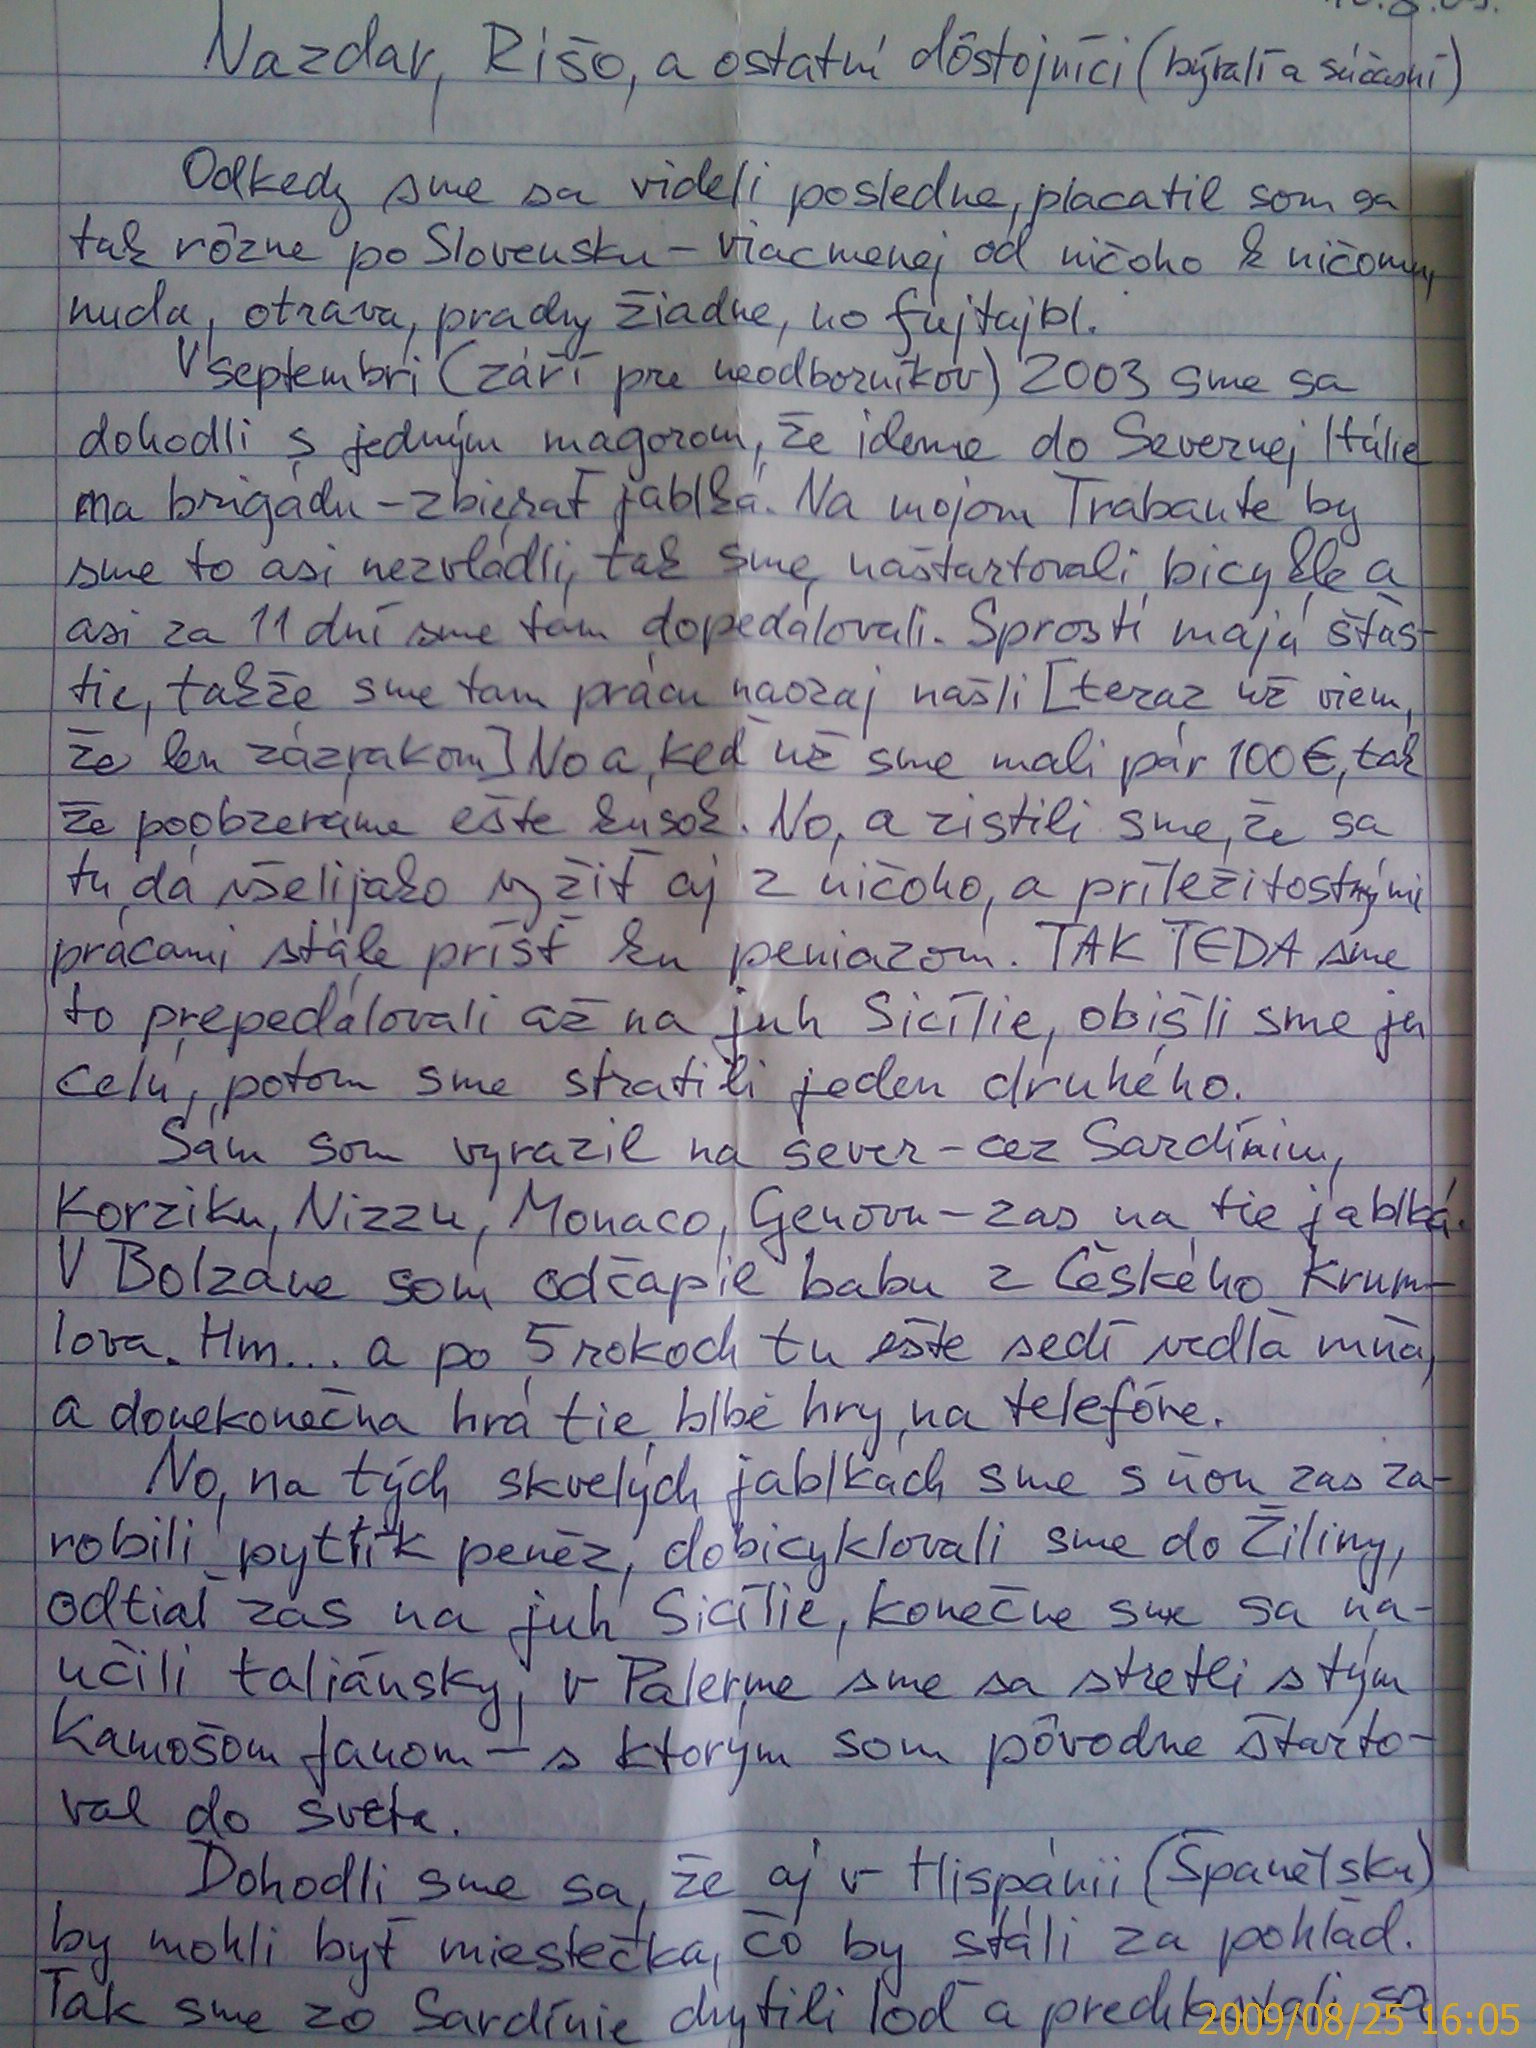 Nazdar, Rišo, a ostatní dôstojníci (bývalí a súčasní)
Odkedy sme sa videli posledne, placatil som sa
tak rôzne po Slovensku – viacmenej od ničoho k ničomu,
nuda, otrava, prachy žiadne, no fujtajbl.
V septembri (září pre neodborníkov) 2003 sme sa
dohodli s jedným magorom, že ideme do Severnej Itálie
na brigádu – zbierať jablká. Na mojom Trabante by
sme to asi nezvládli, tak sme naštartovali bicykle a
asi za 11 dní sme tam dopedálovali. Sprostí majú šťas-
tie, takže sme tam prácu naozaj našli [teraz už viem,
že len zázrakom] No a, keď už sme mali pár 100€, tak
že poobzeráme ešte kúsok. No, a zistili sme, že sa
tu dá všelijako vyžiť aj z ničoho, a príležitostnými
prácami stále prísť ku peniazom. TAK TEDA sme
to prepedálovali až na juh Sicílie, obišli sme ju
celú, potom sme stratili jeden druhého.
Sám som vyrazil na sever – cez Sardíniu,
Korziku, Nizzu, Monaco, Genovu – zas na tie jablká.
V Bolzáne som odčapil babu z Českého Krum-
lova. Hm... a po 5 rokoch tu ešte sedí vedľa mňa,
a donekonečna hrá tie blbé hry na telefóne.
No, na tých skvelých jablkách sme s ňou zas za-
robili pytlík peněz, dobicyklovali sme do Žiliny,
odtiaľ zas na juh Sicílie, konečne sme sa na-
učili taliánsky, v Palerme sme sa stretli s tým
kamošom Janom – s ktorým som pôvodne štarto-
val do sveta.
Dohodli sme sa, že aj v Hispánii (Španělsku)
by mohli byť miestečka, čo by stáli za pohľad.
Tak sme zo Sardínie chytili loď a sa
2009/08/25 16:05